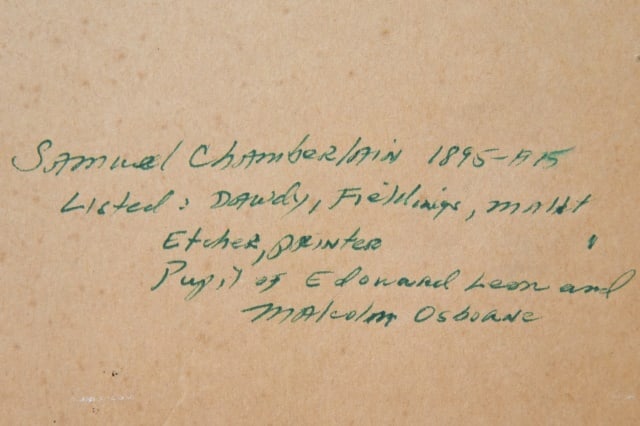 Samuel Chamberlain 1895-1975
Listed: Dawdy, Fieldings, Mallett
Etcher, printer
Pupil of Edouard Leon and
Malcolm Osborne